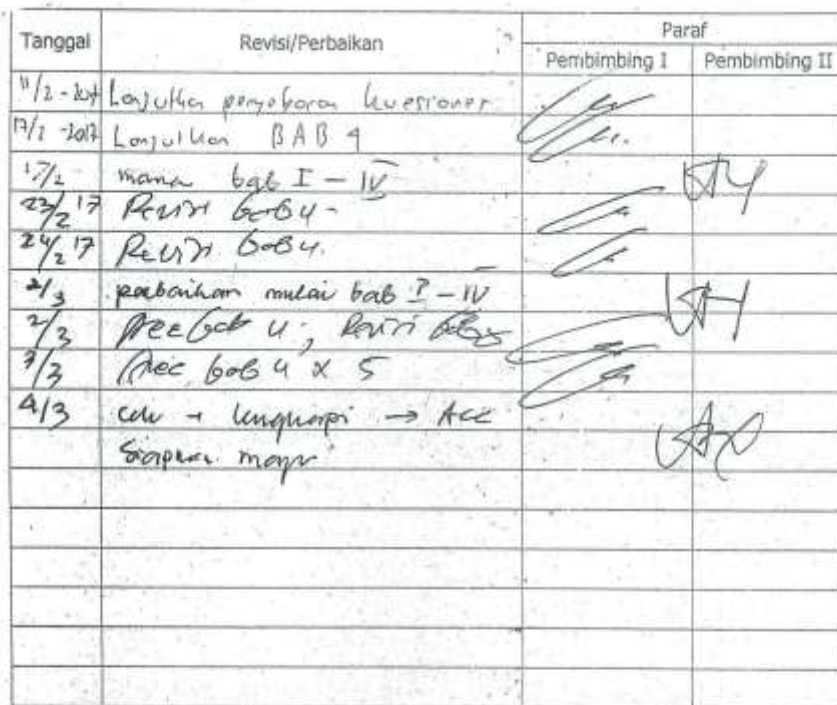 Tanggal Revisi/Perbaikan Paraf
Pembimbing I Pembimbing II
11/2 - 2017 Lanjutkan penyebaran kuesioner
17/2 - 2017 Lanjutkan BAB 4
17/2 bab I - IV
23/2 17 Revisi bab 4 -
24/2 17 Revisi bab 4.
2/3 perbaikan mulai bab I - IV
2/3 Acc bab 4, Revisi
3/3 Acc bab 4 & 5
4/3 cek + lengkapi → Acc
Siapkan maju